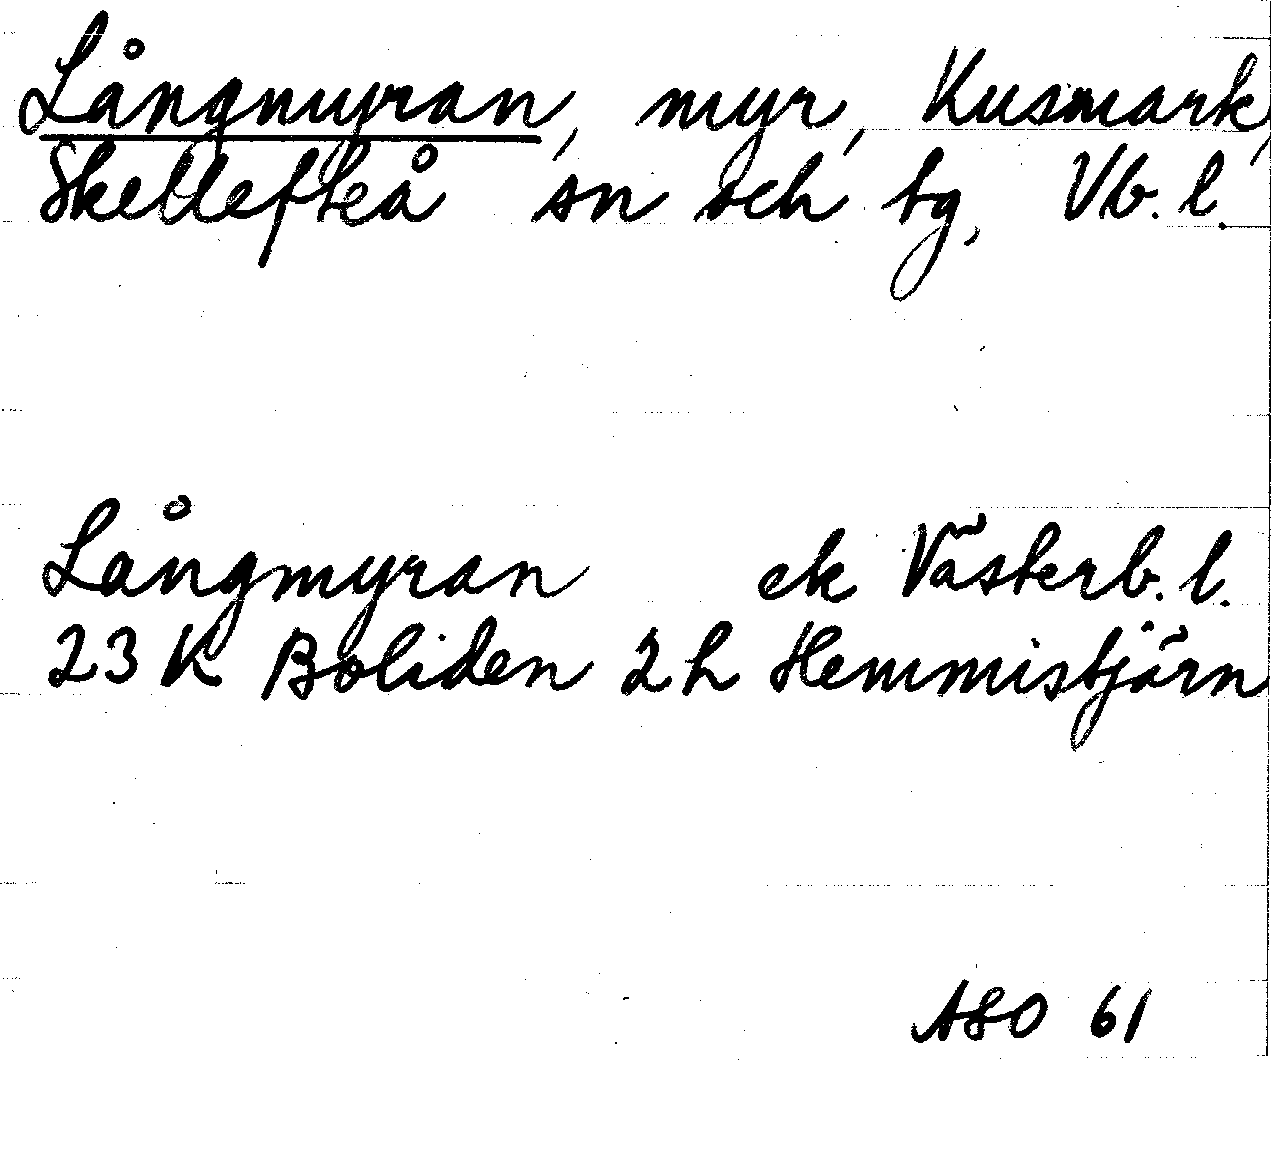 Långmyran, myr, Kusmark,
Skellefteå sn och tg, Vb. l.
Långmyran ek Västerb. l.
23 K Boliden 2 h Hemmistjärn
ASO 61